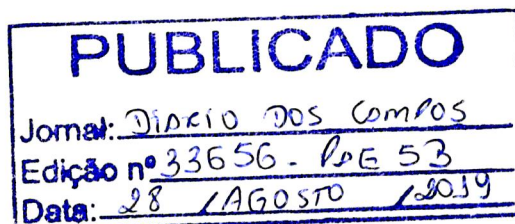 PUBLICADO
Jornal: DIARIO DOS CAMPOS
Edição nº 33656 - PAE 5B
Data: 28 / AGOSTO / 2019